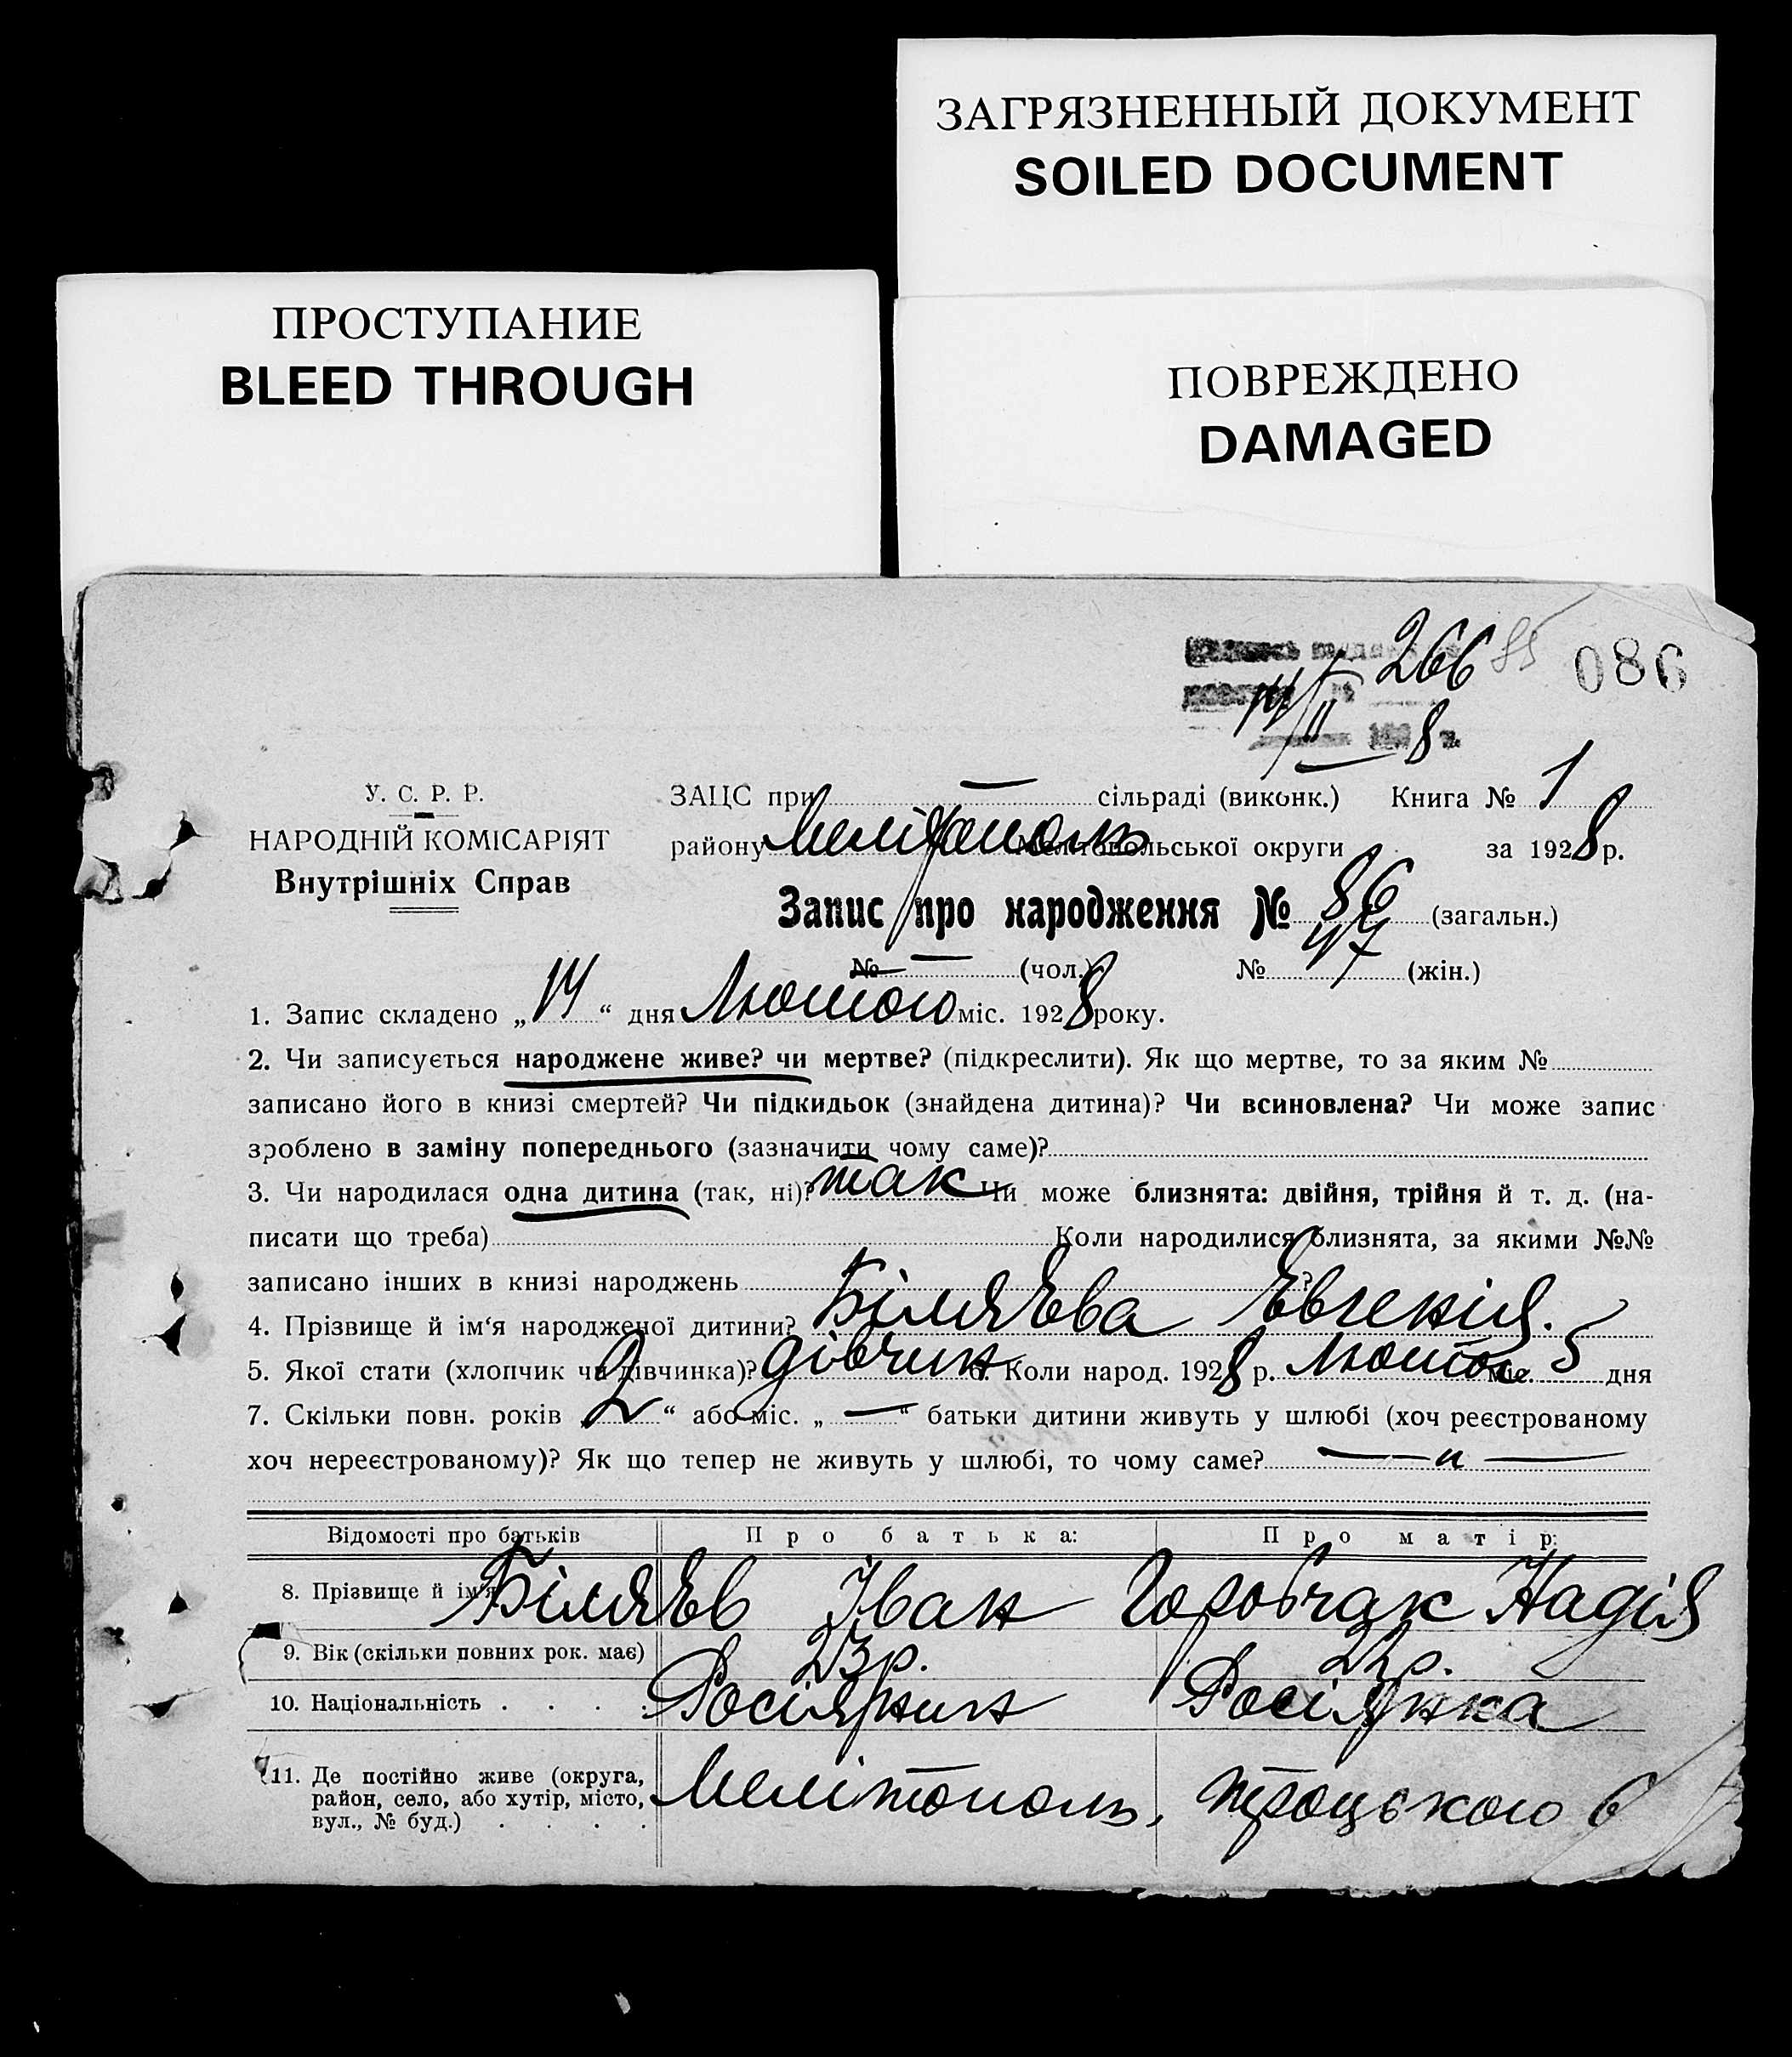 ЗАГРЯЗНЕННЫЙ ДОКУМЕНТ
SOILED DOCUMENT
ПРОСТУПАНИЕ
BLEED THROUGH
ПОВРЕЖДЕНО
DAMAGED
266 85 086
14/II 8
У. С. Р. Р.
НАРОДНІЙ КОМІСАРІЯТ
Внутрішніх Справ
ЗАЦС при — сільраді (виконк.) Книга № 1
району Мелітополь Мелітопольської округи за 1928 р.
Запис про народження № 86 (загальн.)
№ — (чол.) № 47 (жін.)
1. Запис складено „14“ дня Лютого міс. 1928 року.
2. Чи записується народжене живе? чи мертве? (підкреслити). Як що мертве, то за яким №
записано його в книзі смертей? Чи підкидьок (знайдена дитина)? Чи всиновлена? Чи може запис
зроблено в заміну попереднього (зазначити чому саме)?
3. Чи народилася одна дитина (так, ні)? так Чи може близнята: двійня, трійня й т. д. (на-
писати що треба) Коли народилися близнята, за якими №№
записано інших в книзі народжень ?
4. Прізвище й ім‘я народженої дитини? БіляЄва Євгенія.
5. Якої стати (хлопчик чи дівчинка)? дівчин 6. Коли народ. 1928 р. Лютого міс. 5 дня
7. Скільки повн. років „2“ або міс. „—“ батьки дитини живуть у шлюбі (хоч реєстрованому
хоч нереєстрованому)? Як що тепер не живуть у шлюбі, то чому саме? — „ —
Відомості про батьків Про батька: Про матір:
8. Прізвище й ім'я БіляЄв Іван Горобчак Надія
9. Вік (скільки повних рок. має) 23 р. 22 р.
10. Національність . . . . Росіянин Росіянка
11. Де постійно живе (округа,
район, село, або хутір, місто,
вул., № буд.) . . . . Мелітополь, Троцького 6